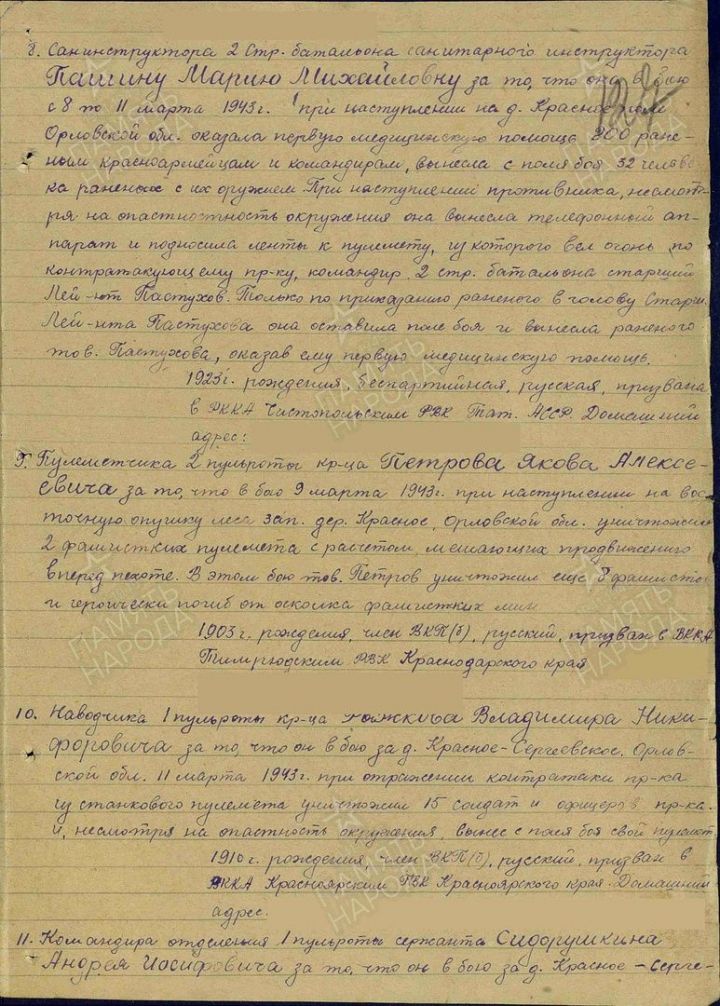 8. Санинструктора 2 стр. батальона санитарного инструктора
Пашину Марию Михайловну за то, что она в бою
с 8 по 11 марта 1943 г. при наступлении на д. Красное
Орловской обл. оказала первую медицинскую помощь 200 ране-
ным красноармейцам и командирам, вынесла с поля боя 32 челове-
ка раненых с их оружием. При наступлении противника, несмот-
ря на опастностность окружения она вынесла телефонный ап-
парат и подносила ленты к пулемету, из которого вел огонь по
контратакующему пр-ку, командир 2 стр. батальона старший
Лей-нт Пастухов. Только по приказанию раненого в голову Старш.
Лей-нта Пастухова она оставила поле боя и вынесла раненого
тов. Пастухова, оказав ему первую медицинскую помощь.
1923 г. рождения, беспартийная, русская, призвана
в РККА Чистопольским РВК Тат. АССР. Домашний
адрес:
9. Пулеметчика 2 пульроты кр-ца Петрова Якова Алексе-
евича за то, что в бою 9 марта 1943 г. при наступлении на вос-
точную опушку леса зап. дер. Красное, Орловской обл. уничтожил
2 фашистких пулемета с расчетом, мешающих продвижению
вперед пехоте. В этом бою тов. Петров уничтожил еще 8 фашистов
и героически погиб от осколка фашистких мин
1903 г. рождения, член ВКП(б), русский, призван в РККА
Темрюдским РВК Краснодарского края
10. Наводчика 1 пульроты кр-ца Владимира Ники-
форовича за то, что он в бою за д. Красное-Сергеевское, Орлов-
ской обл. 11 марта 1943 г. при отражении контратаки пр-ка
из станкового пулемета уничтожил 15 солдат и офицеров пр-ка.
и, несмотря на опастность окружения, вынес с поля боя свой пулемет
1910 г. рождения, член ВКП(б), русский, призван в
РККА Красноярским РВК Красноярского края. Домашний
адрес.
11. Командира отделения 1 пульроты сержанта Сидорушкина
Андрея Иосифовича за то, что он в бою за д. Красное-Серге-
ПАМЯТЬ НАРОДА
ПАМЯТЬ НАРОДА
ПАМЯТЬ НАРОДА
ПАМЯТЬ НАРОДА
ПАМЯТЬ НАРОДА
ПАМЯТЬ НАРОДА